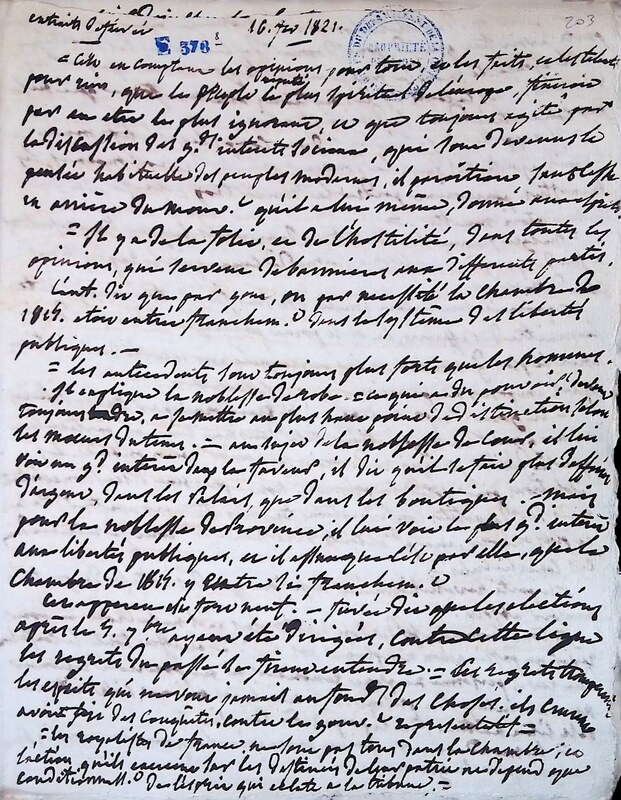 extraits de fiévée 16. fev 1821. 203
E 378 8
DU DEPARTEMENT DE LA
PROPRIÉTÉ
= en comptant les opinions pour tout, et les faits, et les talents
pour rien, que le peuple réputé le plus spirituel de l'europe, finirait
par en etre le plus ignorant, et que toujours agité par
la discussion des gds interets sociaux, qui sont devenus la
pensée habituelle des peuples modernes, il paraitrait sans cesse
en arrière du mouvt qu'il a lui même, donné aux esprits.
= Il y a de la folie, et de l'hostilité, dans toutes les
opinions, qui servent de bannieres aux differents partis.
L'aut. dit que par gout, ou par necessité la chambre de
1815. etait entrée franchemt dans le systême des libertés
publiques. —
= les antecedents sont toujours plus forts que les hommes.
Il explique la noblesse de robe = ce qui a du pouvoir,
toujours, a se mettre au plus haut point de distinction selon
les mœurs du tems. — au sujet de la noblesse de Cour, il lui
voit un gd interet dans la faveur, il dit qu'il se fait plus d'affaires
d'argent, dans les palais, que dans les boutiques. — mais
pour la noblesse de Province, il lui voit le plus gd interet
aux libertés publiques, et il assure que c'est par elle, que la
Chambre de 1815. y entra si franchemt
Cet apperçu est forcement. — fiévée dit que les elections
après le 5. 7bre ayant été dirigées, contre cette ligne
les regrets du passé se firent entendre = Les regrets trompent
les esprits qui ne vont jamais au fond des choses. ils crurent
avoir fait des conquêtes, contre le gouvt representatif =
= les royalistes de france, ne sont pas tous dans la chambre, et
l'action qu'ils exercent sur les destinées de leur patrie ne depend que
conditionnellt de l'esprit qui eclate a la tribune. =